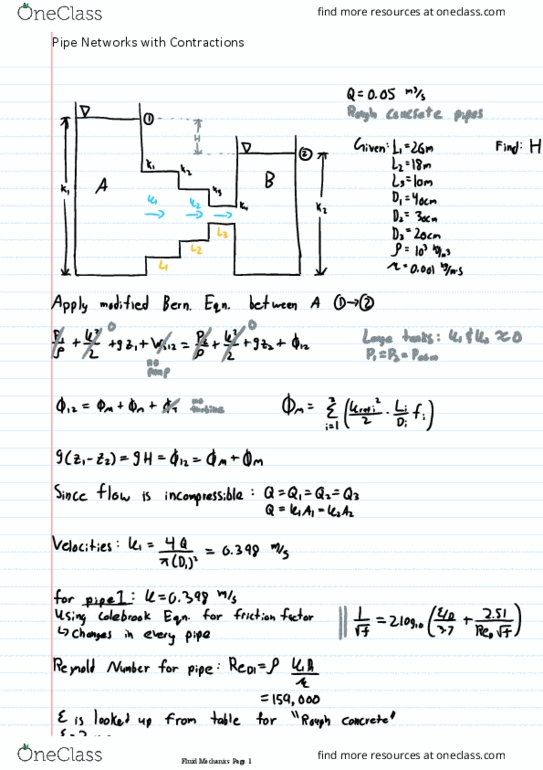 OneClass
find more resources at oneclass.com
Pipe Networks with Contractions
Q = 0.05 m³/s
Rough concrete pipes
Given: L₁=26m
Find: H
L₂=18m
L₃=10m
D₁=40cm
D₂=30cm
D₃=20cm
ρ=10³ kg/m³
μ=0.001 kg/m·s
① H ②
A B
L₁
L₂
L₃
Apply modified Bern. Eqn. between A ①→②
P₁/ρ + u₁²/2 + gz₁ + W₁₂ = P₂/ρ + u₂²/2 + gz₂ + Φ₁₂
no pump
Large tanks: u₁ & u₂ ≈ 0
no turbine
g(z₁-z₂) = gH = Φ₁₂
Since flow is incompressible: Q=Q₁=Q₂=Q₃
Q=u₁A₁=u₂A₂
Velocities: u₁ = 4Q/π(D₁)² = 0.398 m/s
for pipe 1: u=0.398 m/s
Using Colebrook Eqn. for friction factor
↳ changes in every pipe
1/√f = 2log₁₀(ε/D/3.7 + 2.51/Re₀√f)
Reynold Number for pipe: Re_D1 = ρ
=159,000
ε is looked up from table for "Rough concrete"
OneClass
Fluid Mechanics Page 1
find more resources at oneclass.com